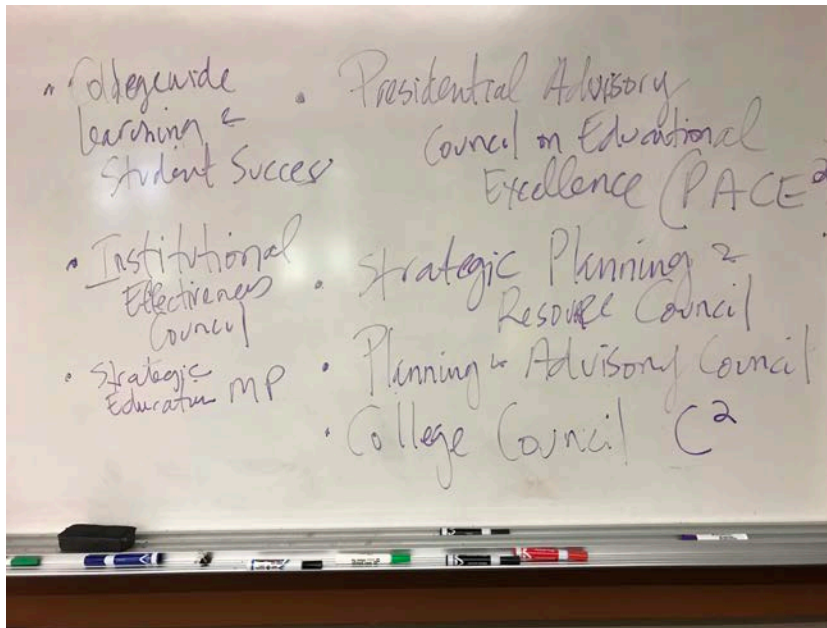 • Collegewide
Learning &
Student Success
• Institutional
Effectiveness
Council
• Strategic
Education MP
• Presidential Advisory
Council on Educational
Excellence (PACE²
• Strategic Planning &
Resource Council
• Planning & Advisory Council
• College Council C²